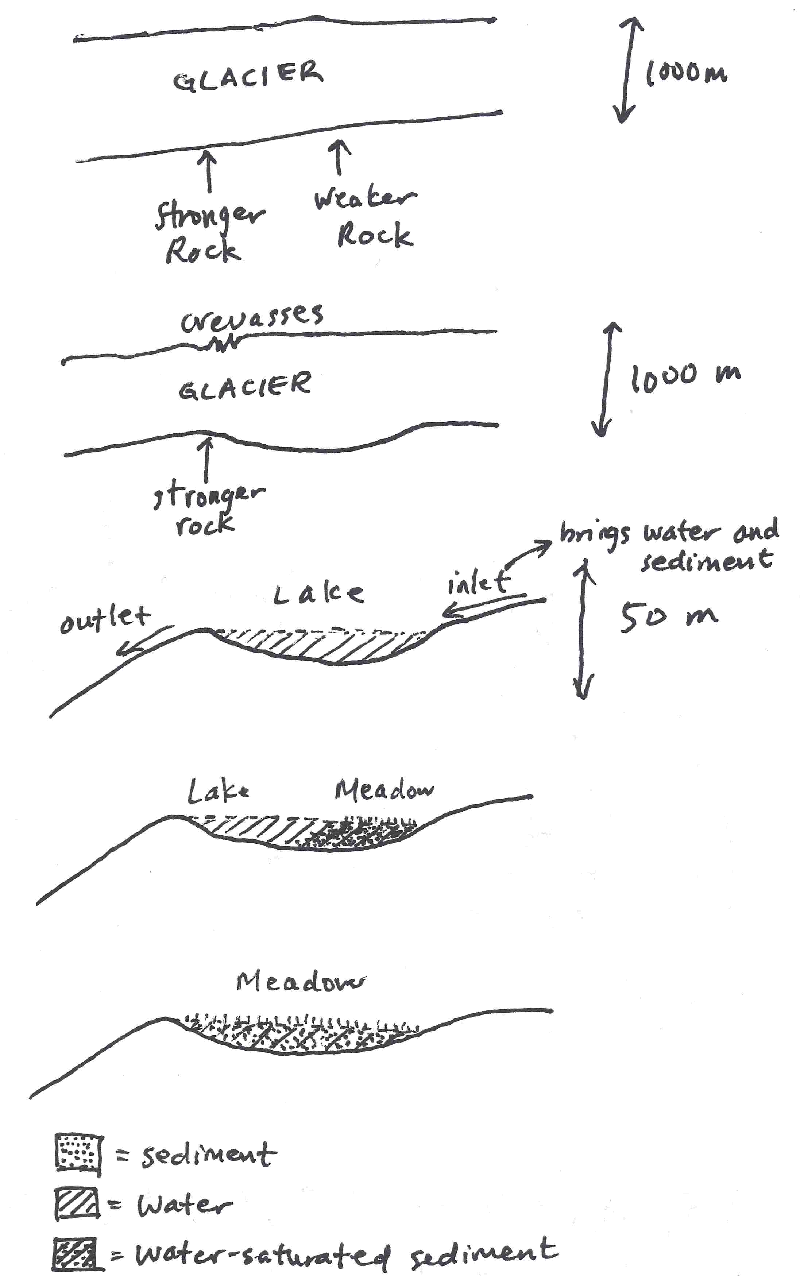 GLACIER
1000m
Stronger
Rock
Weaker
Rock
crevasses
GLACIER
1000 m
stronger
rock
brings water and
sediment
Lake
inlet
outlet
50 m
Lake
Meadow
Meadow
= sediment
= Water
= Water-saturated sediment